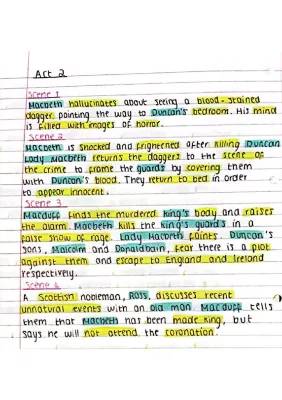 Act 2
Scene 1
Macbeth hallucinates about seeing a blood-stained
dagger, pointing the way to Duncan's bedroom. His mind
is filled with images of horror.
Scene 2
Macbeth is shocked and frightened after killing Duncan
Lady Macbeth returns the daggers to the scene of
the crime to frame the guards by covering them
with Duncan's blood. They return to bed in order
to appear innocent.
Scene 3
Macduff finds the murdered king's body and raises
the alarm. Macbeth kills the king's guards in a
false show of rage. Lady Macbeth faints. Duncan's
sons, Malcolm and Donaldbain, fear there is a plot
against them and escape to England and Ireland
respectively.
Scene 4
A Scottish nobleman, Ross, discusses recent
unnatural events with an old man. Macduff tells
them that Macbeth has been made king, but
says he will not attend the coronation.